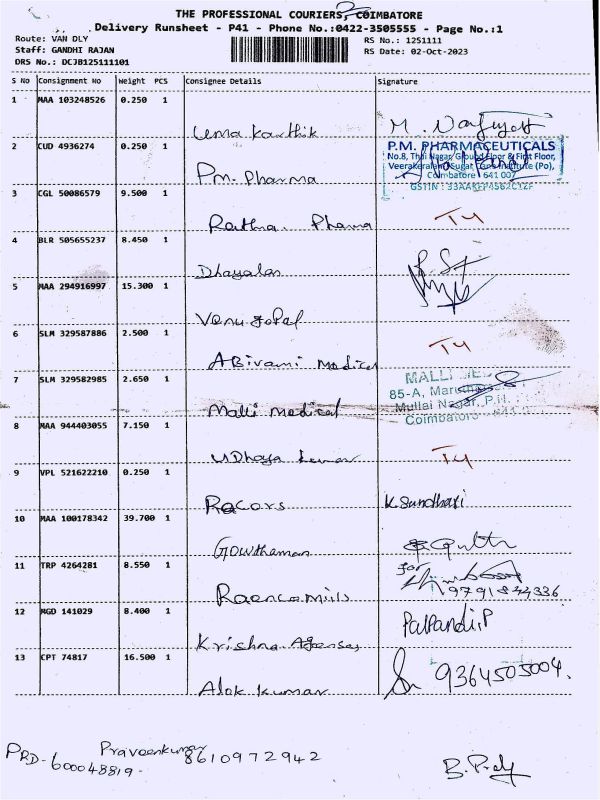 THE PROFESSIONAL COURIERS, COIMBATORE
Delivery Runsheet - P41 - Phone No.:0422-3505555 - Page No.:1
Route: VAN DLY
Staff: GANDHI RAJAN
DRS No.: DCJB125111101
RS No.: 1251111
RS Date: 02-Oct-2023
S No Consignment No Weight PCS Consignee Details Signature
1 MAA 103248526 0.250 1 Uma Karthik M.
2 CUD 4936274 0.250 1 Pm. Pharma
P.M. PHARMACEUTICALS
No.8, Thil Nagar Ground Floor & First Floor,
Veerakeralam, Sugar Cane Institute (Po),
Coimbatore 641 007
3 CGL 50086579 9.500 1 Rathna. Pharma T4
4 BLR 505655237 8.450 1 Dhayalan
5 MAA 294916997 15.300 1 Venu gopal
6 SLM 329587886 2.500 1 ABivami medical T4
7 SLM 329582985 2.650 1 Malli medical
MALLI
85-A,
Mullai Nagar, P.N.
Coimbatore
8 MAA 944403055 7.150 1 UDhaya kumar T4
9 VPL 521622210 0.250 1 Racors K.Sundhari
10 MAA 100178342 39.700 1 Gowthaman
11 TRP 4264281 8.550 1 Raencomills for
9791844336
12 MGD 141029 8.400 1 Krishna Agenses PalPandi.P
13 CPT 74817 16.500 1 Alok kumar 9364505004.
PRD-600048819- Praveenkumar 8610972942